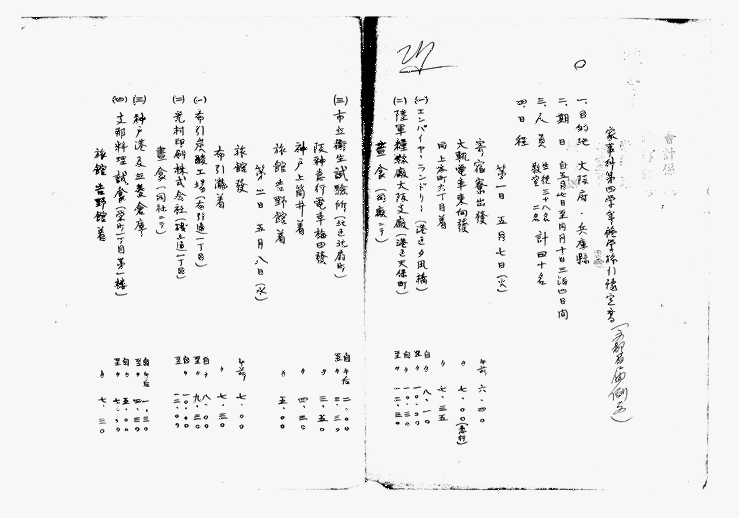 家事科第四学年修学旅行豫定書
一、目的地 大阪府・兵庫縣
二、期日 自五月七日至同月十日三泊四日間
三、人員 生徒三十八名 教官二名 計四十名
四、日程
第一日 五月七日(火)
寄宿寮出發 午前 六、四〇
大軌電車東向發 〃 七、〇〇(急行)
同上本町六丁目着 〃 七、三五
(一)エンパイヤ・ランドリー(港区夕凪橋) 自〃 八、一〇 至〃
(二)陸軍糧秣廠大阪支廠(港区天保町) 自〃 一〇、三〇 至〃 一二、三〇
晝食(同廠ニテ)
(三)市立衛生試驗所(北区北扇町) 自午后 二、〇〇 至〃
阪神急行電車梅田發 〃 三、五〇
神戸上筒井着 〃 四、三〇
旅館吉野館着 〃 五、〇〇
第二日 五月八日(水)
旅館發 午前 七、〇〇
布引瀧着 〃 七、三〇
(一)布引炭酸工場(布引通一丁目) 自〃 八、〇〇 至〃 九、三〇
(二)光村印刷株式会社(通一丁目) 自〃 一〇、〇〇 至〃 一二、〇〇
晝食(同社ニテ)
(三)神戸港及三菱倉庫 自午后 一、三〇 至〃 四、三〇
(四)支那料理試食(栄町一丁目第一樓) 自〃 五、〇〇 至〃 七、〇〇
旅館吉野館着 〃 七、三〇
会計保